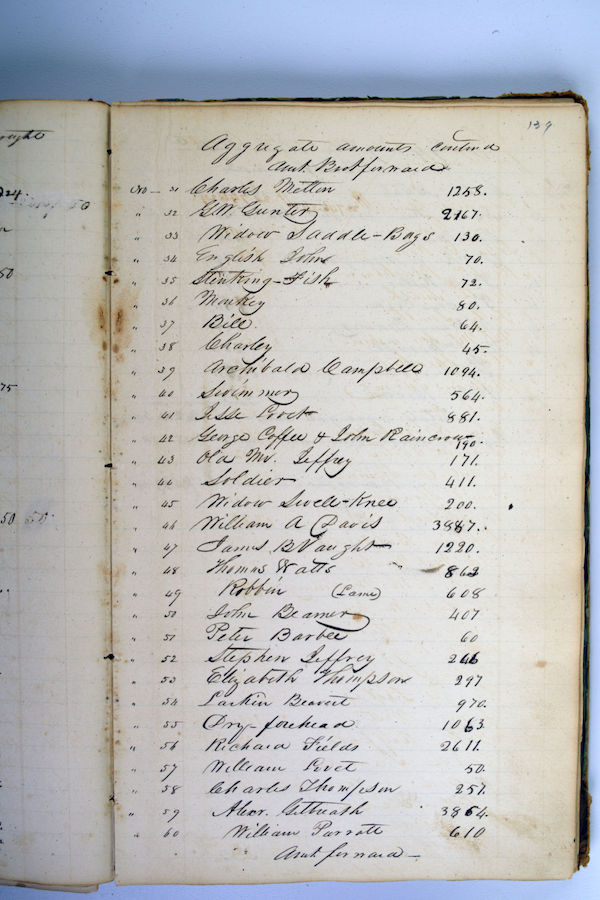 139
Aggregate amounts contind
Amt. Brot forward
No — 31 Charles Metten 1258.
" 32 G.W. Gunter 2167.
" 33 Widow Saddle-Bags 130.
" 34 English John 70.
" 35 Stinking-Fish 72.
" 36 Monkey 80.
" 37 Bill. 64.
" 38 Charley 45.
" 39 Archibald Campbell 1094.
" 40 Swimmer 564.
" 41 Isse Lovet 881.
" 42 George Coffee & John Raincrow 190.
" 43 Old Mr. Jeffrey 171.
" 44 Soldier 411.
" 45 Widow Swell-Knee 200.
" 46 William A Davis 3887.
" 47 James B Vaught 1220.
" 48 Thomas Watts " 863
" 49 Robbin (Lame) 608
" 50 John Beamer 407
" 51 Peter Barbee 60
" 52 Stephen Jeffrey
" 53 Elizabeth Thompson 297
" 54 Larkin Beavert 970.
" 55 Dry-forehead 1063.
" 56 Richard Fields 2611.
" 57 William Lovet 50.
" 58 Charles Thompson 257.
" 59 Alexr. Gilbreath 3864.
" 60 William Parrott 610
Amt. forward —
50
75
50 50.